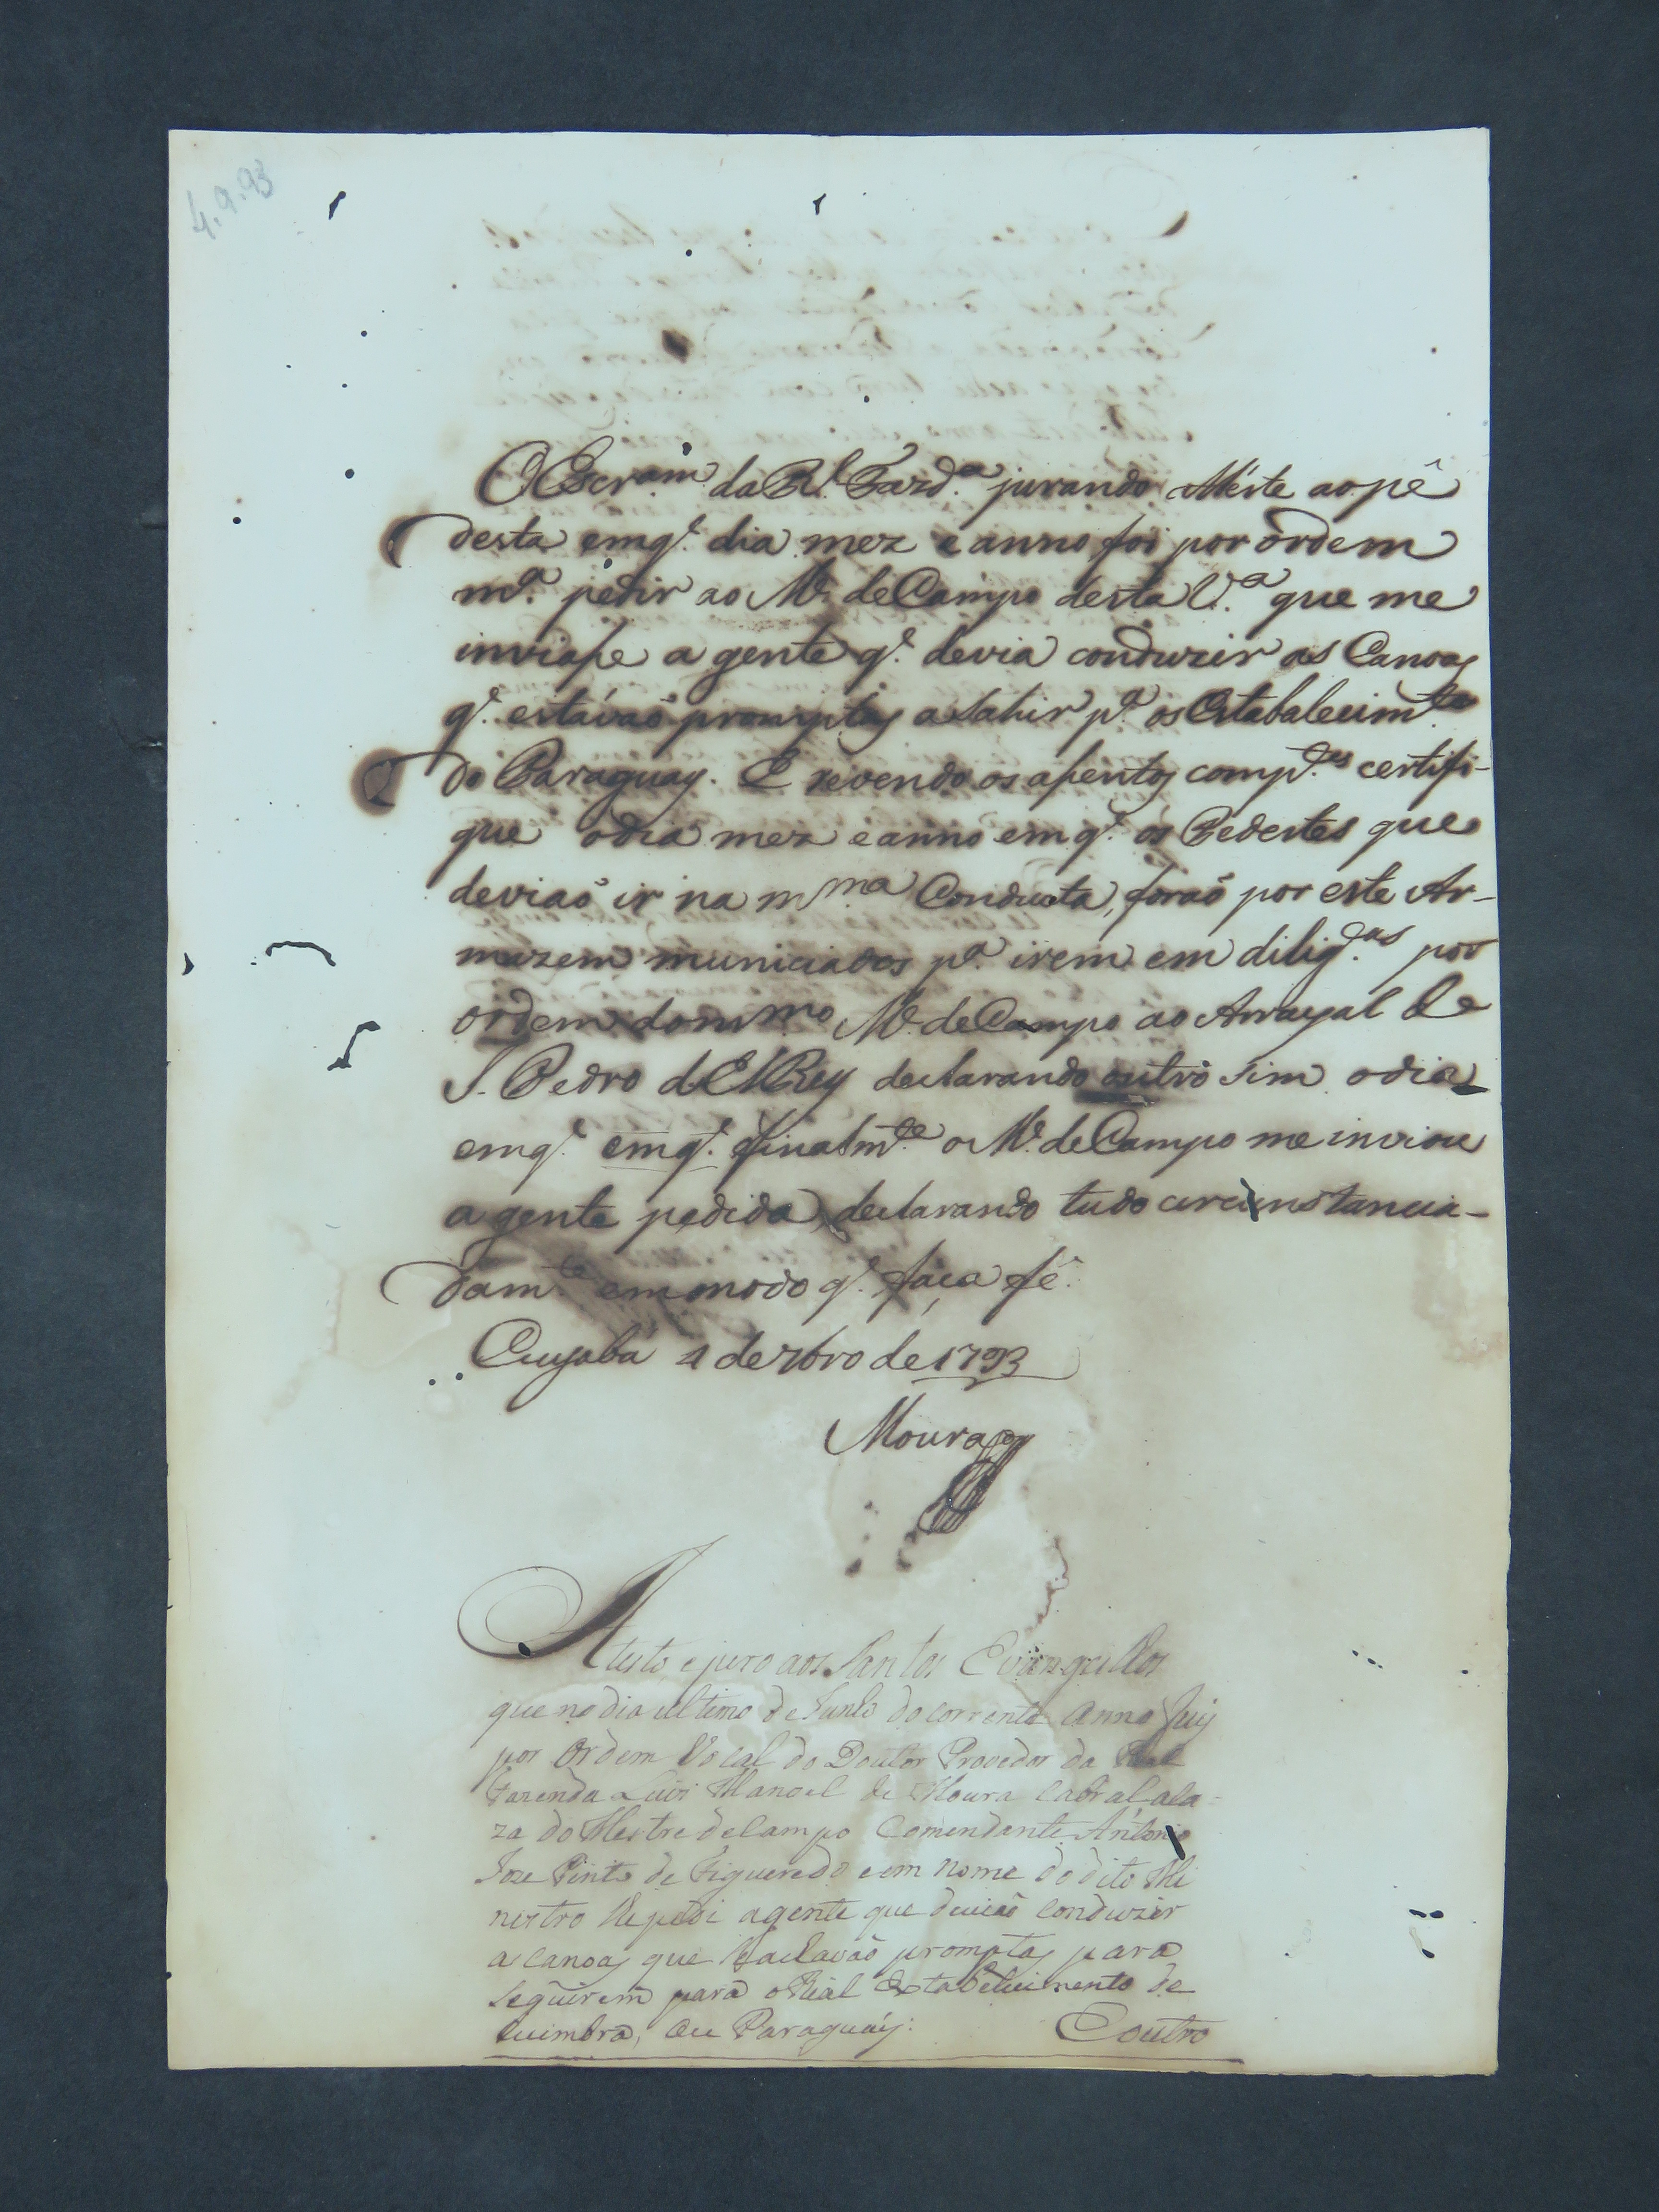 4.9.93
O Escram da Rl. Fazda. jurando Atéste ao pê
desta emq. dia mez e anno foi por ordem
ma. pedir ao Me. de Campo desta Va. que me
inviase a gente q. devia conduzir as Canoas
q. estávaõ promptas a sahir pa. os Estabalecimtos
do Paraguay. E revendo os asentos comptes. certifi-
que o dia mez e anno emq. os Pedestes que
deviaõ ir na mma. Conducta, foraõ por este Ar-
mazem municiados pa. irem em diligas. por
ordem do mmo Me. de Campo ao Arrayal de
S. Pedro d'ElRey declarando outro sim o dia
emq. emq. finalmte. o Me. de Campo me inviou
a gente pedida, declarando tudo circunstancia-
damte. em modo q. faça fé.
Cuyabá 4 de 7bro de 1793
Moura
Atesto, e juro aos Santos Evangelhos
que no dia ultimo de Junho do corrente Anno fuy
por Ordem Vocal do Doutor Provedor da Real
Fazenda Luis Manoel de Moura Cabral a ca-
za do Mestre de Campo Comendante António
Joze Pinto de Figueredo e em nome do dito Mi
nistro lhe pedi a gente que deviaõ conduzir
a canoas que se achavaõ promptas para
seguirem para o Rial Estabelecimento de
Cuimbra, ou Paraguáy: E outro